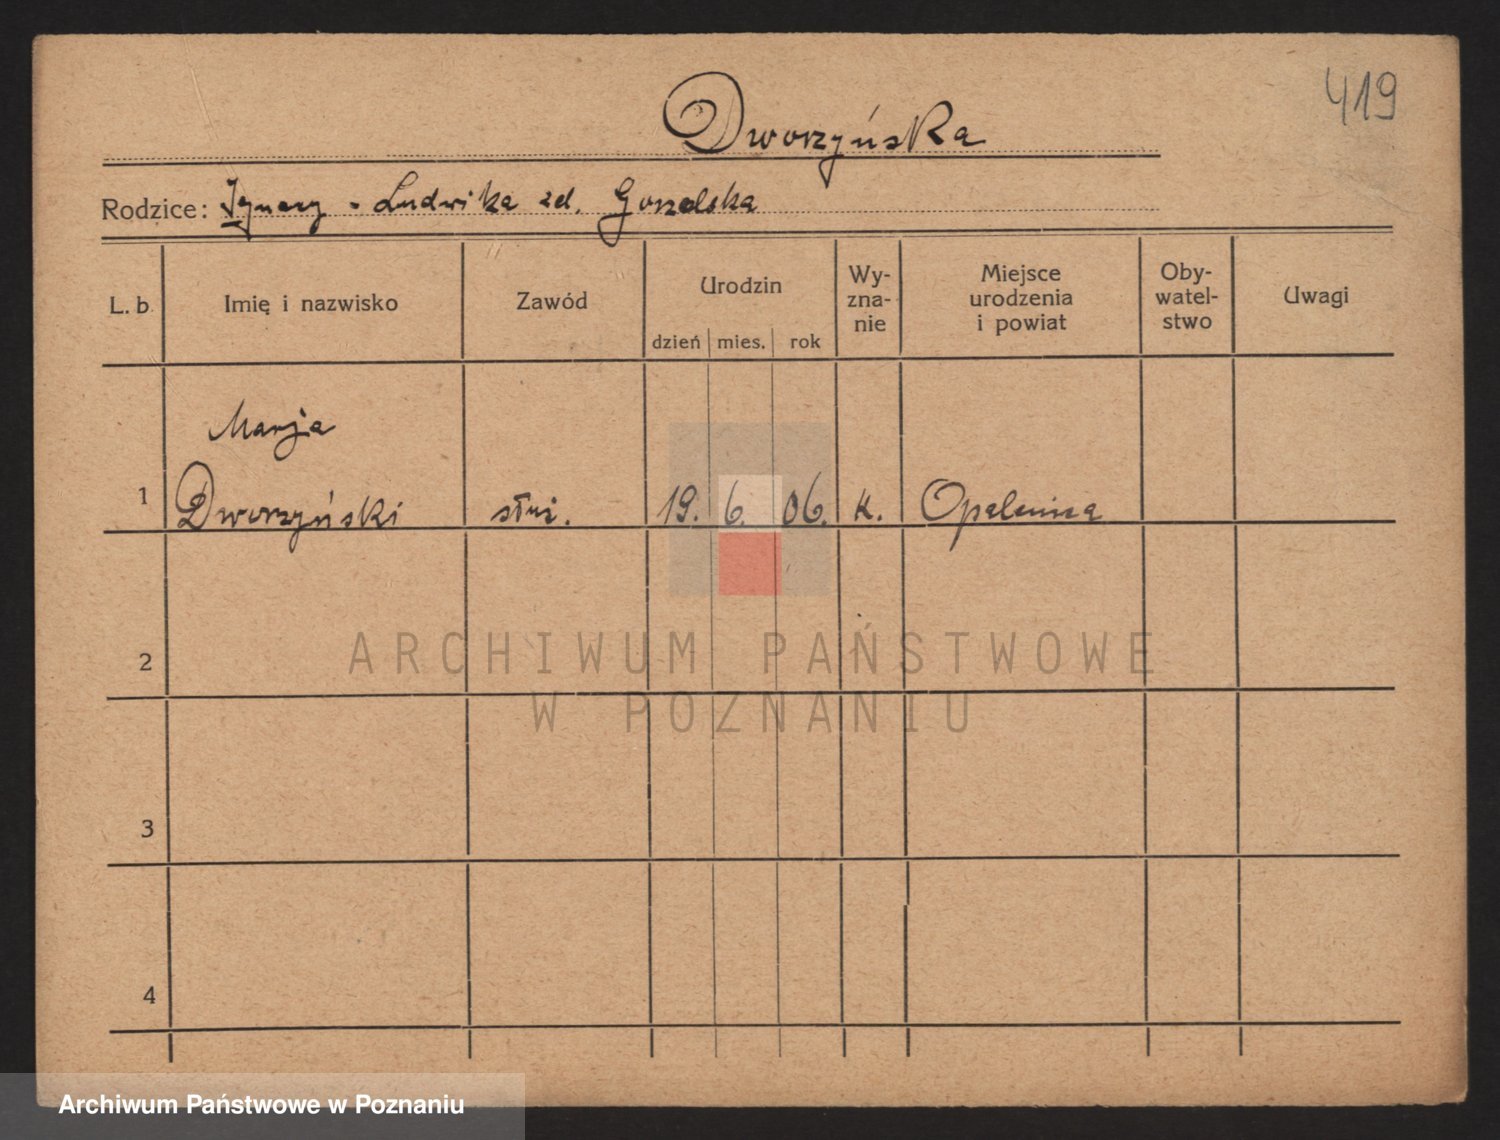 419
Dworzyńska
Rodzice: Ignacy - Ludwika zd. Gorzelska
L. b. Imię i nazwisko Zawód Urodzin dzień mies. rok Wy-zna-nie Miejsce urodzenia i powiat Oby-watel-stwo Uwagi
Marja
1 Dworzyński służ. 19. 6. 06. k. Opalenica
2
ARCHIWUM PAŃSTWOWE
W POZNANIU
3
4
Archiwum Państwowe w Poznaniu